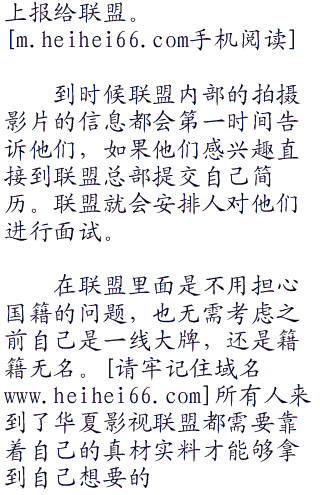 上报给联盟。
[m.heihei66.com手机阅读]
到时候联盟内部的拍摄
影片的信息都会第一时间告
诉他们，如果他们感兴趣直
接到联盟总部提交自己简
历。联盟就会安排人对他们
进行面试。
在联盟里面是不用担心
国籍的问题，也无需考虑之
前自己是一线大牌，还是籍
籍无名。[请牢记住域名
www.heihei66.com]所有人来
到了华夏影视联盟都需要靠
着自己的真材实料才能够拿
到自己想要的